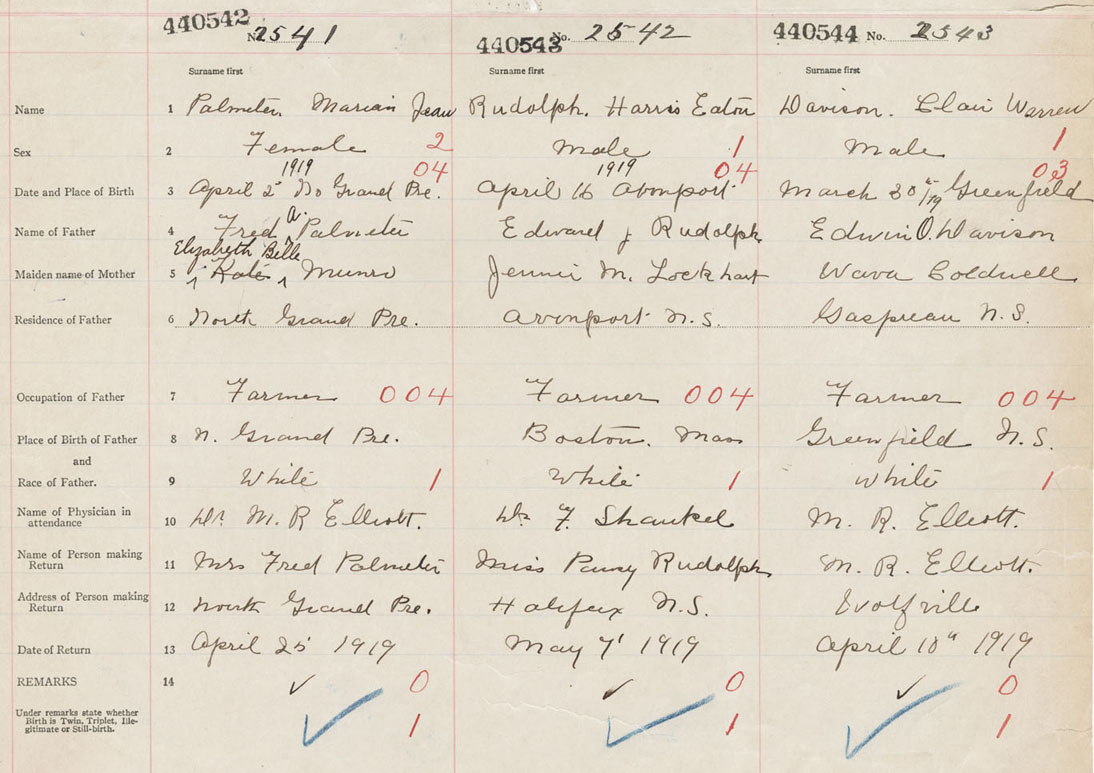 440542 No. 2541 440543 No. 2542 440544 No. 2543
Surname first Surname first Surname first
Name 1 Palmeter, Marian Jean Rudolph, Harris Eaton Davison, Clair Warren
Sex 2 Female 2 Male 1 Male 1
1919 04 1919 04 03
Date and Place of Birth 3 April 2 No Grand Pre. April 16 Avonport March 30th/19 Greenfield
Name of Father 4 Fred A. Palmeter Edward J Rudolph Edwin O. Davison
Elizabeth Belle
Maiden name of Mother 5 Kate Munro Jennie M. Lockhart Wava Coldwell
Residence of Father 6 North Grand Pre. Avonport N.S. Gaspreau N.S.
Occupation of Father 7 Farmer 004 Farmer 004 Farmer 004
Place of Birth of Father 8 N. Grand Pre. Boston, Mass Greenfield N.S.
and
Race of Father. 9 White 1 White 1 White 1
Name of Physician in
attendance 10 Dr. M. R Elliott. Dr F. Shankel M. R. Elliott.
Name of Person making
Return 11 Mrs Fred Palmeter Miss Rudolph M. R. Elliott.
Address of Person making
Return 12 North Grand Pre. Halifax N.S. Wolfville
Date of Return 13 April 25 1919 May 7 1919 April 10" 1919
REMARKS 14 0 0 0
Under remarks state whether
Birth is Twin, Triplet, Ille-
gitimate or Still-birth.
1 1 1